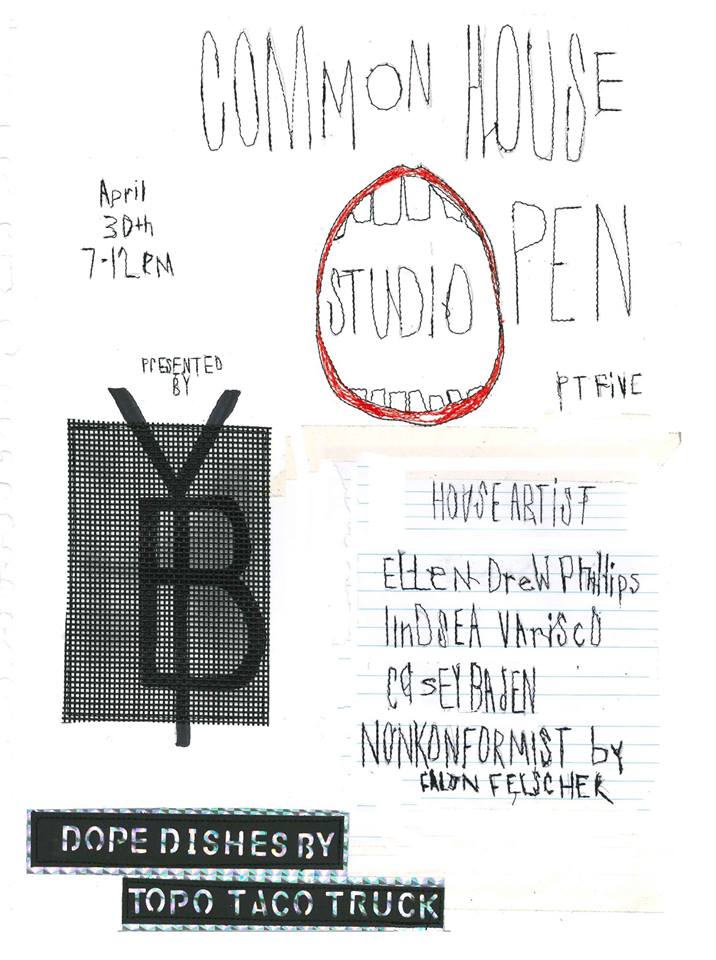 COMMON HOUSE
OPEN
STUDIO
PT FiVE
April
30th
7-12 PM
PRESENTED
BY
YB
HOUSE ARTIST
ELLEN DreW Phillips
linDSEA VAriScO
CaSEY BASEN
NONKONFORMIST by
FELSCHER
DOPE DISHES BY
TOPO TACO TRUCK